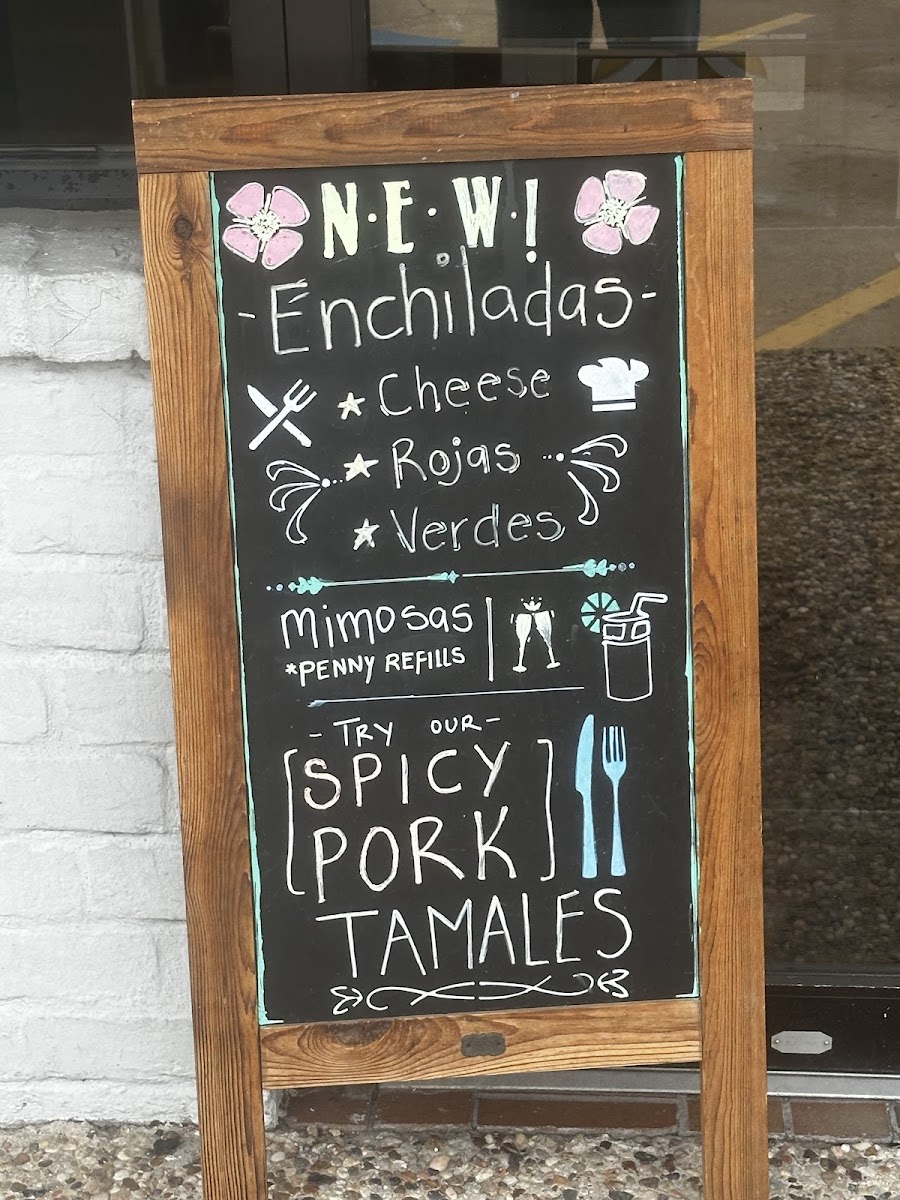 N·E·W!
-Enchiladas-
Cheese
Rojas
Verdes
Mimosas
*PENNY REFILLS
-TRY OUR-
[SPICY
PORK]
TAMALES